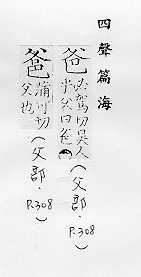 四聲篇海
爸
必駕切吳人
呼父曰爸
(父部.P.308)
蒲可切
父也
(父部.P.308)